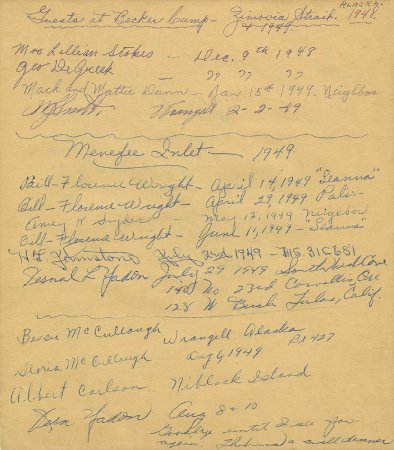 Guests at Becker Camp - Zimovia Strait. Alaska. 1948.
& 1949.
Mrs Lillian Stokes - Dec. 9th 1948
Geo DeGreek - ?? ?? ??
Mack and Mattie Dunn - Jan 15th 1949 - Neighbor
Wrangell 2-2-49
Menefee Inlet - 1949
Bill - Florence Wright - April 14, 1949 "Leanna"
Bill - Florence Wright - April 29, 1949 Pals.-
Amey W Snyder - May 12, 1949 Neighbor
Bill - Florence Wright - June 1, 1949 - "Leanna"
H L Johnston July 2nd 1949 - MS. 31C681
L Yadon July 29 1949 South
140 No 23rd Corvallis Ore
128 W Bush Calif.
Bessie McCullough Wrangell Alaska
Gloria McCullough Aug 6, 1949 Bx 427
Albert Carlson. Niblack Island
Yadon Aug 8 & 10
Goodbye until I see you
again. a swell dinner